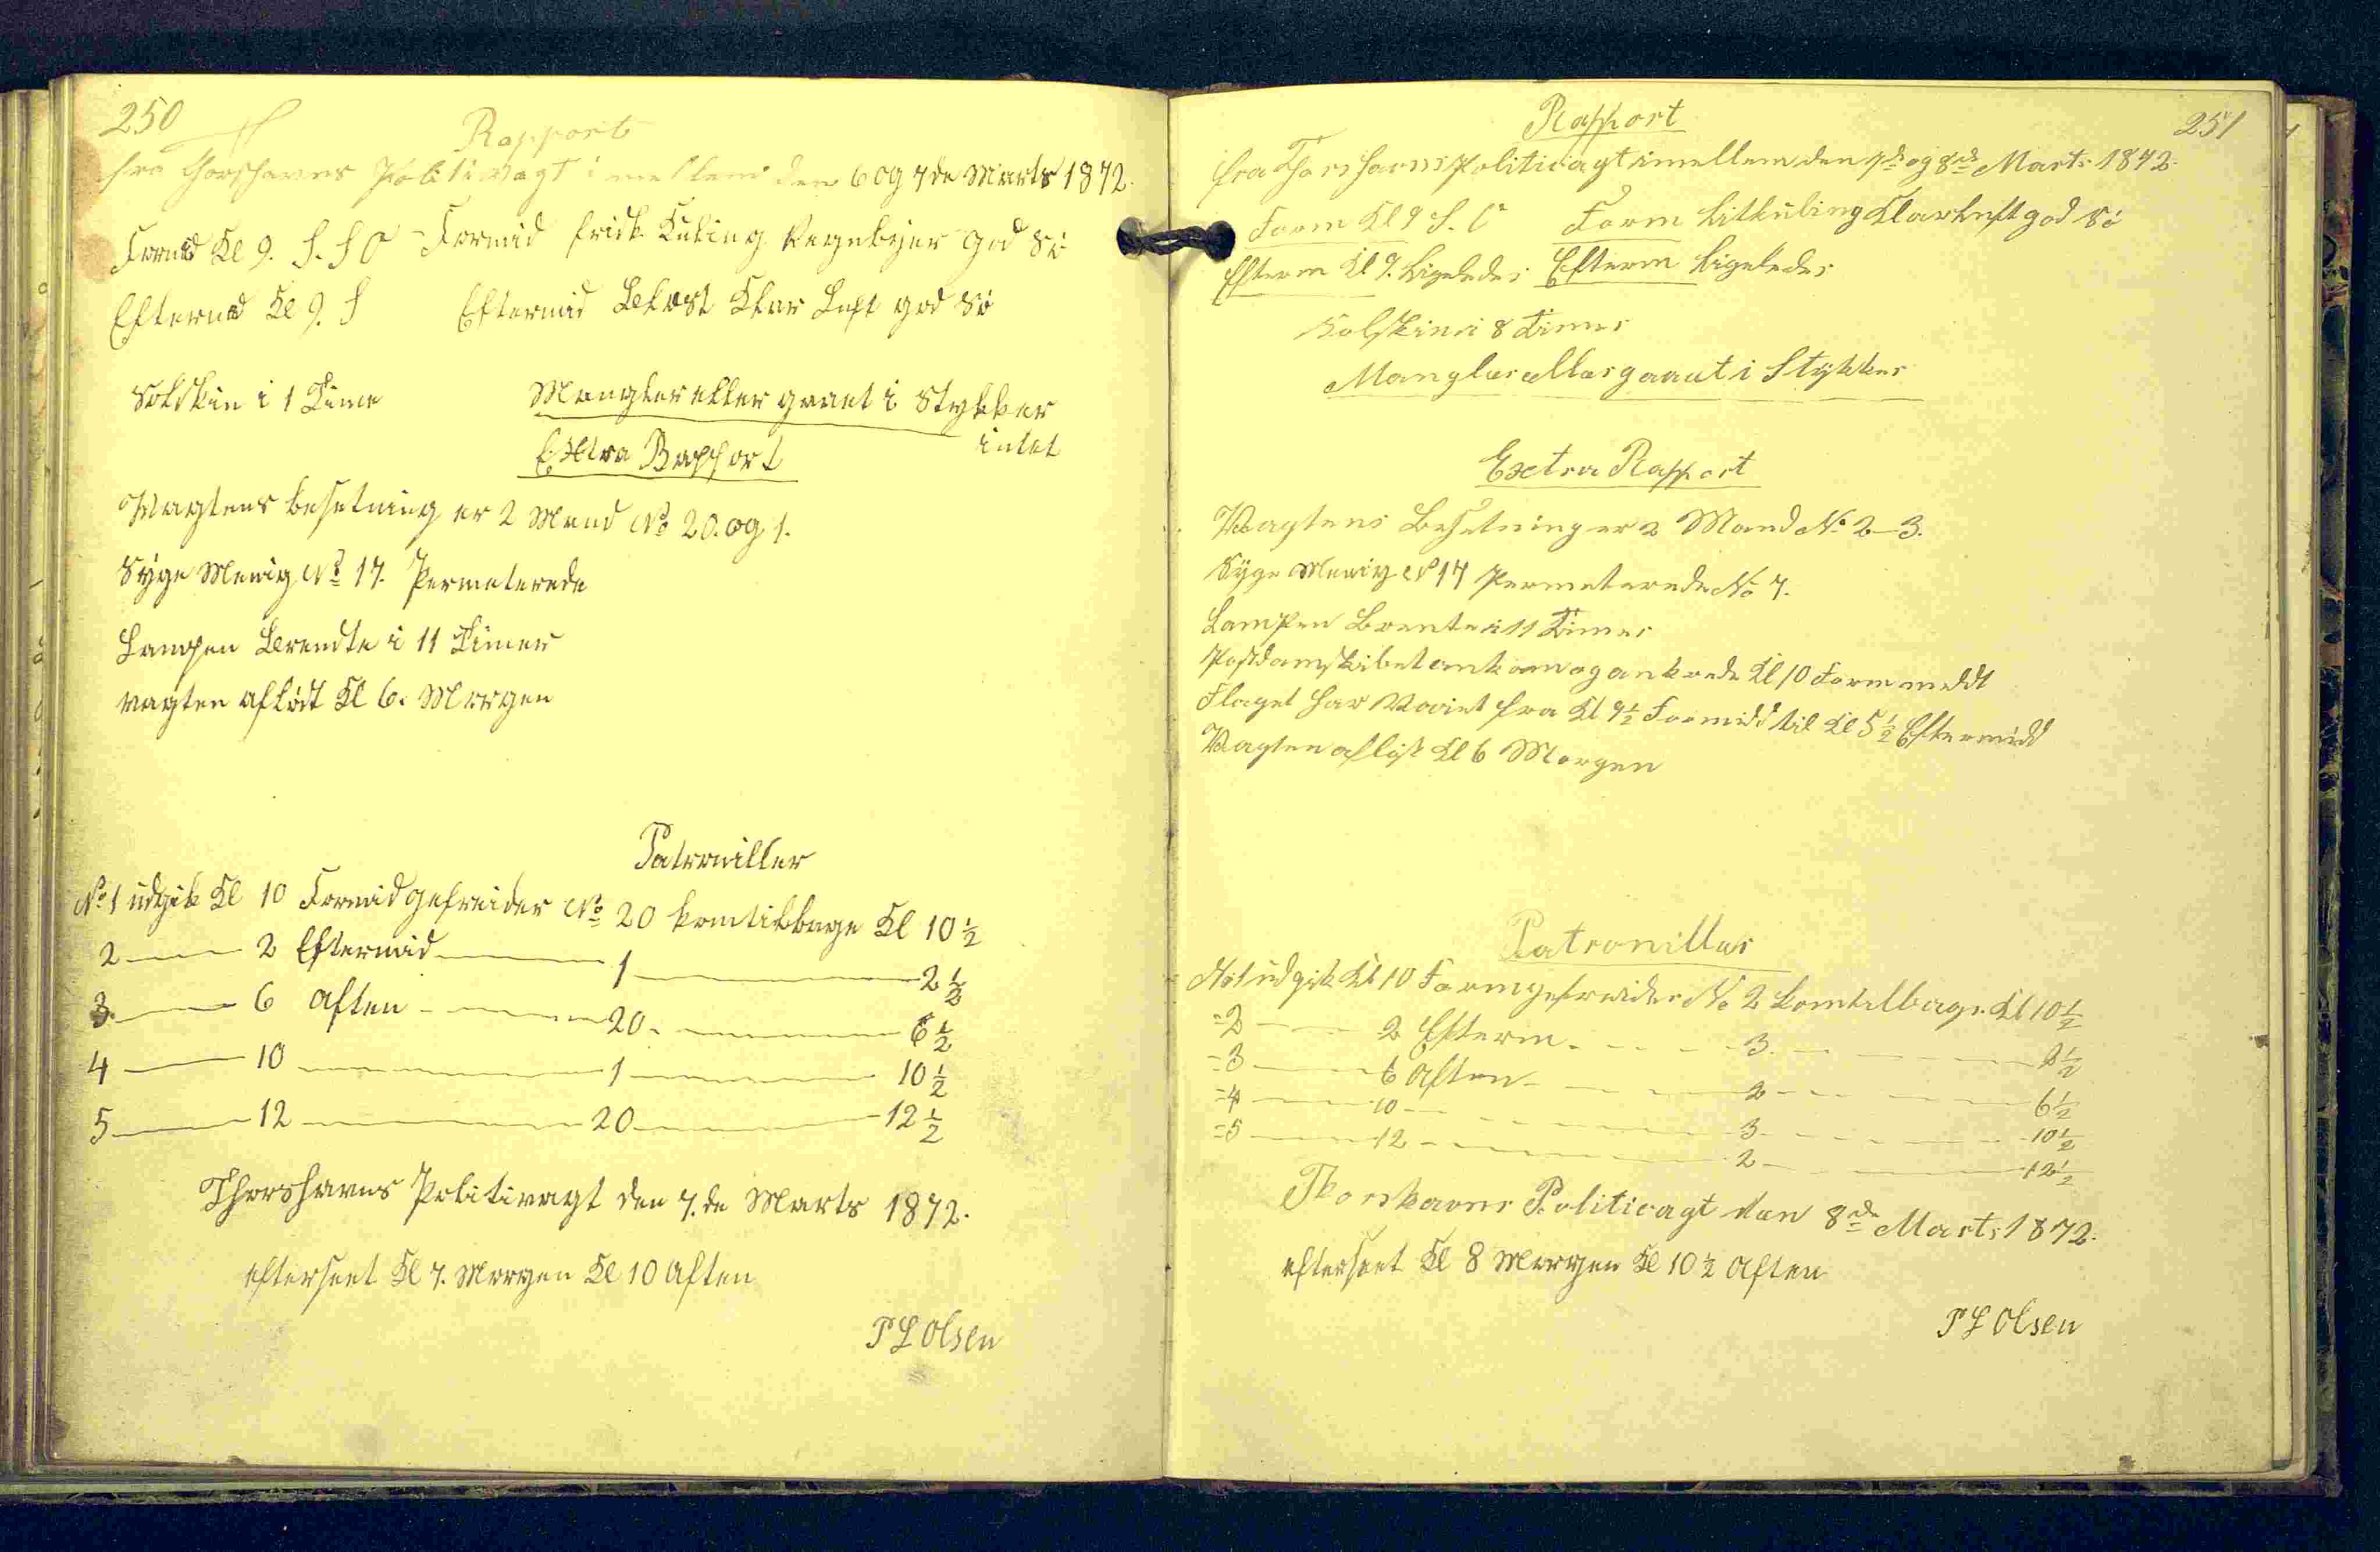 250
Rapport
fra Thorshavns Politivagt imellem den 6 og 7de Marts 1872.
Formid Kl 9. S. S O - Formid frisk Kuling Regnbyer god Sö
Eftermd Kl 9. S Eftermid Blæst Klar Luft god Sö
Solskin i 1 Time Mangler eller gaaet i Stykker
intet
Extra Rapport
Vagtens besetning er 2 Mand No 20. og 1.
Syge Menig No 17. Permeterede
Lampen Brendte i 11 Timer
vagten aflöst Kl 6. Morgen
Patrouiller
No 1 udgik Kl 10 Formid gefreider No 20 kom tilbage Kl 10 1/2
2 — 2 Eftermid — 1 — 2 1/2
3 — 6 Aften — 20. — 6 1/2
4 — 10 — 1 — 10 1/2
5 — 12 — 20 — 12 1/2
Thorshavns Politivagt den 7.de Marts 1872.
efterseet Kl 7. Morgen Kl 10 Aften
P L Olsen
251
Rapport
fra Thorshavns Politivagt imellem den 7de og 8de Marts 1872.
Form Kl 9 S. Form Litkuling Klar Luft god Sö
Efterm Kl 9. Ligeledes Efterm Ligeledes
Solskin i 8 Timer
Mangler eller gaaet i Stykker
Extra Rapport
Vagtens Besetning er 2 Mand No 2-3.
Syge Menig No 17 Permeterede No 7.
Lampen Brente i 11 Timer
Postdamskibet ankom og ankrede Kl 10 Formmidd
Flaget har Vaiet fra Kl 9 1/2 Formidd til Kl 5 1/2 Eftermidd
Vagten aflöst Kl 6 Morgen
Patrouiller
No 1 udgik Kl 10 Form gefreider No 2 kom tilbage Kl 10 1/2
=2 — 2 Efterm. — 3. — 2 1/2
=3 — 6 Aften — 2 — 6 1/2
=4 — 10 — 3 — 10 1/2
=5 — 12 — 2 — 12 1/2
Thorshavns Politivagt den 8de Marts 1872.
efterseet Kl 8 Morgen Kl 10 1/2 Aften
P L Olsen